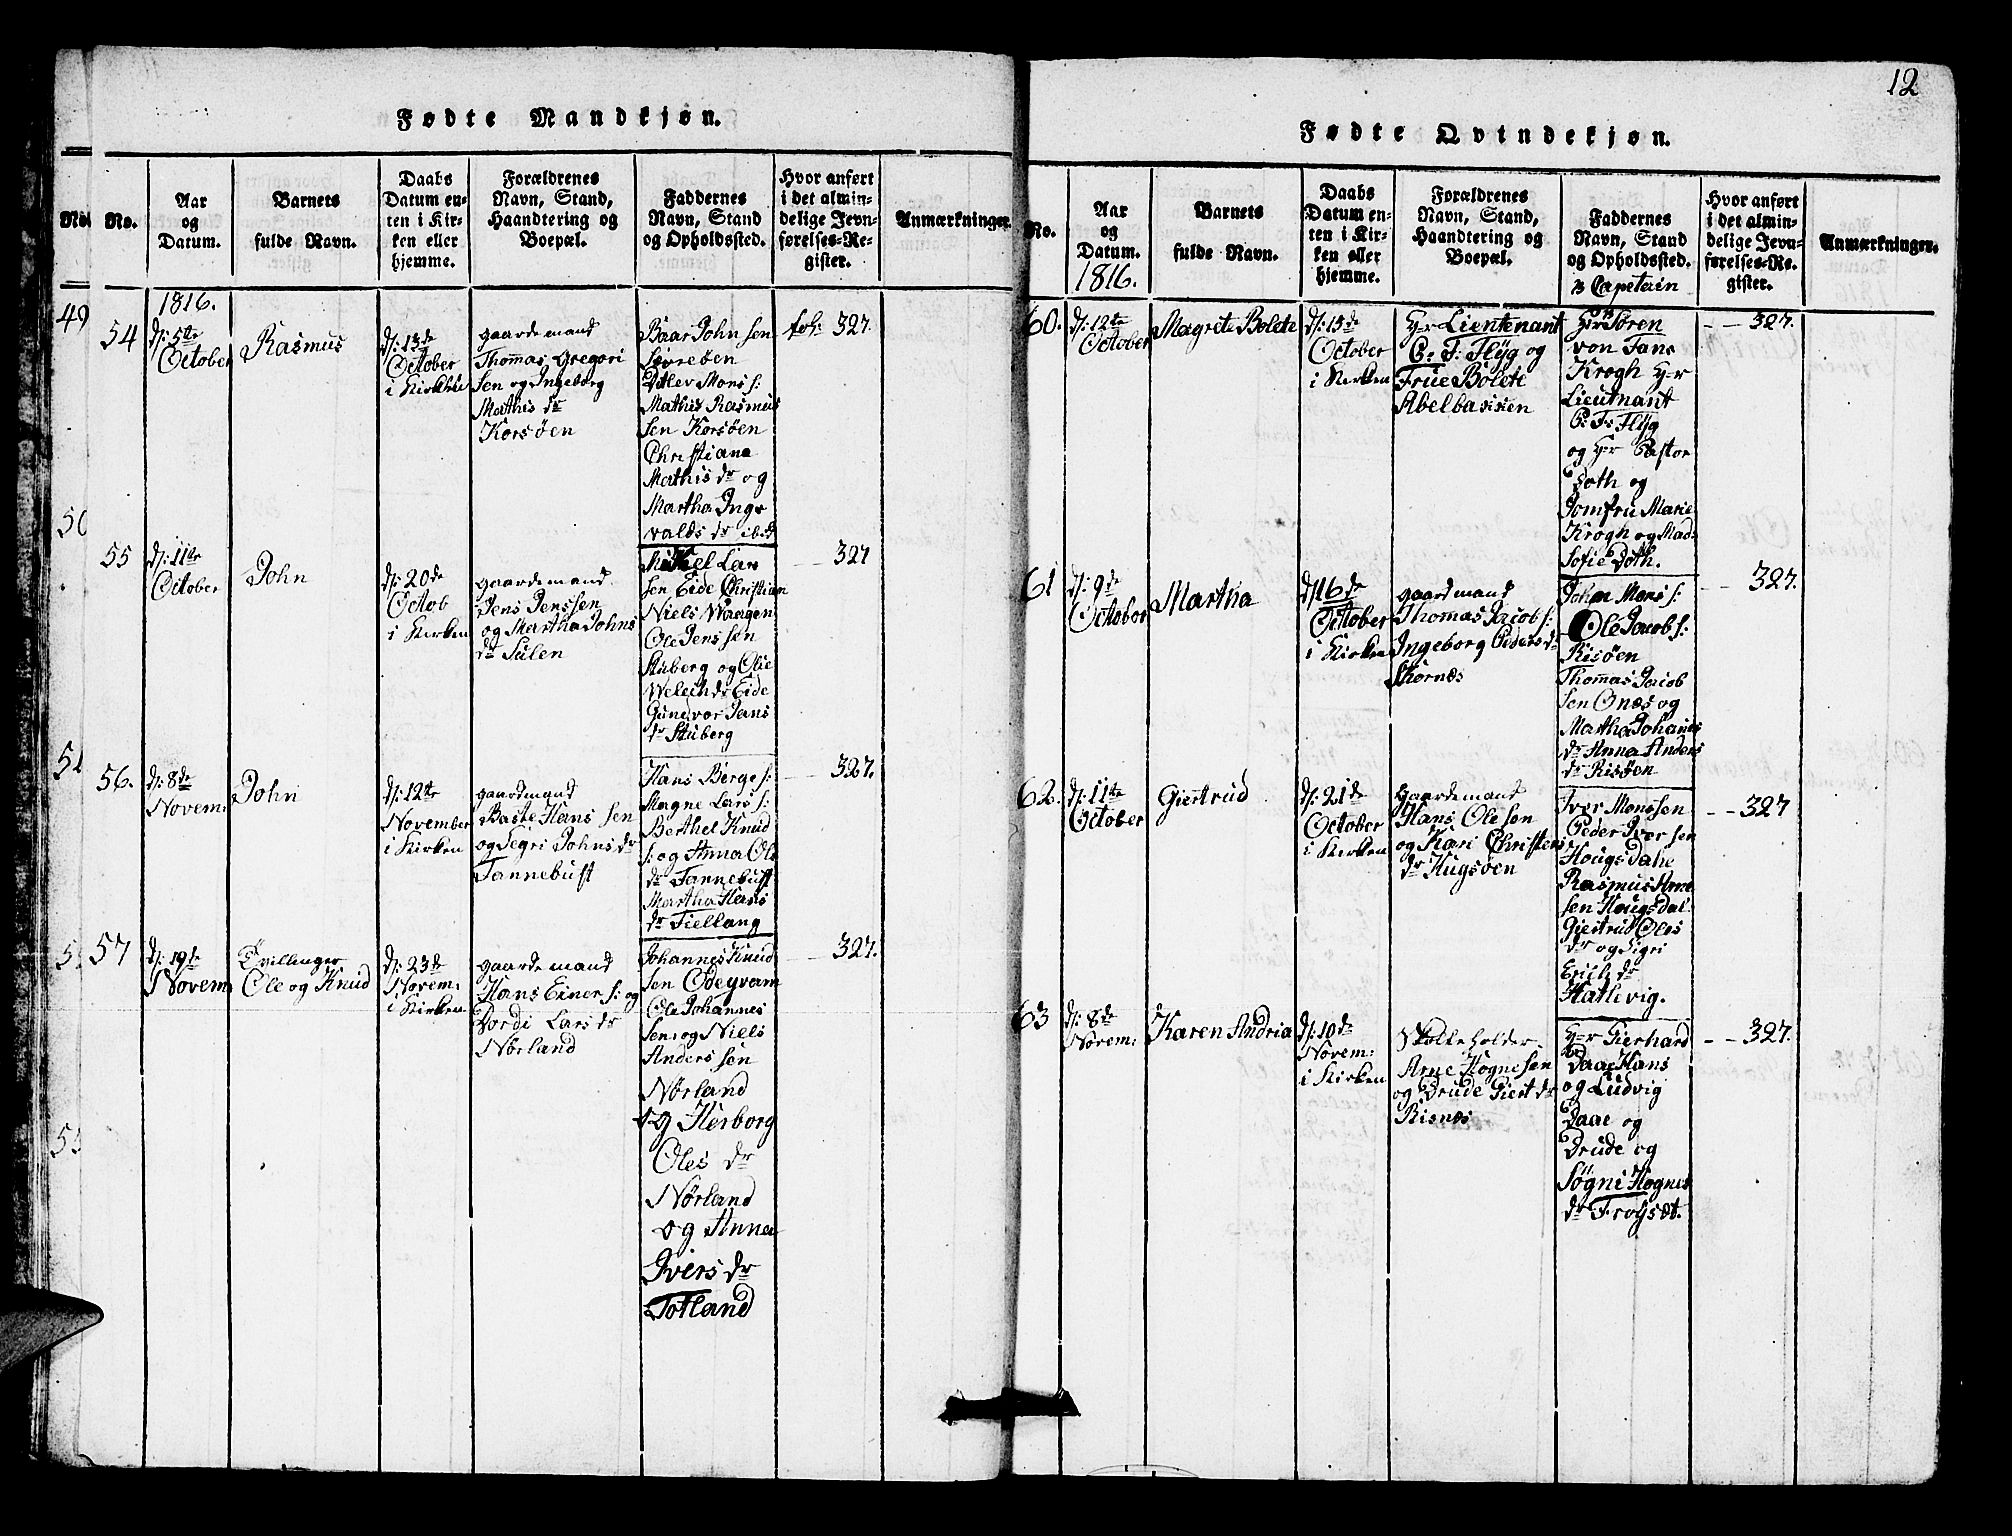 12
Fødte Mandkjøn.
No.
No.
Aar
og
Datum.
Barnets
fulde Navn.
Daabs
Datum en-
ten i Kir-
ken eller
hjemme.
Forældrenes
Navn, Stand,
Haandtering og
Boepæl.
Faddernes
Navn, Stand
og Opholdssted.
Hvor anført
i det almin-
delige Jevn-
førelses-Re-
gister.
Anmærkninger.
49
50
51
54
1816.
d: 5te
October
Rasmus
d: 13de
October
i Kirken
gaardemand
Thommas Gregori
sen og Ingeborg
Mathis dr
Korsøen
Baar John sen
Ditlev Mons s:
Mathis Rasmus
sen Korsøen
Christiane
Mathis dr og
Martha Ing-
valds dr ibd
fol: 327.
55
d: 11te
October
John
d: 20de
Octob
i Kirken
gaardemand
Jens Jenssen
og Martha Johns
dr Sulen
Mikkel Lar
sen Eide Christian
Niels Waagen
Ole Jenssen
Stuberg og Olie
Gundvor Jans
dr Stuberg
327
56.
d: 8de
Novem:
John
d: 12te
November
i Kirken
gaardmand
Baste Hans sen
og Segri Johns dr
Tannebust
Hans Berge s:
Magne Lars s:
Berthel Knud
s: og Anna Ols
dr Tannebust
Martha Hans
dr Fiellang
327.
57
d: 19de
Novem
Tvillinger
Ole og Knud
d: 23de
Novem:
i Kirken
gaardemand
Hans Einer s: og
Dordi Lars dr
Nørland
Johannes Knud
sen Odeyvam
Ole Johannes
sen og Niels
Anders sen
Nørland
og Herborg
Oles dr
Nørland
og Anna
Ivers dr
Totland
327.
Fødte Qvindekjøn.
No.
Aar
og
Datum.
1816.
Barnets
fulde Navn.
Daabs
Datum en-
ten i Kir-
ken eller
hjemme.
Forældrenes
Navn, Stand,
Haandtering og
Boepæl.
Faddernes
Navn, Stand
og Opholdssted.
Capetain
Hvor anført
i det almin-
delige Jevn-
førelses-Re-
gister.
Anmærkninger.
60.
d: 12te
October
Magrete Bolete
d: 13de
October
i Kirken
Hr Lieutenant
C: F: Flyg og
Frue Bolete
Abelbassisen
Hr Søren
von Tans
Krogh Hr
Lieutnant
C: F: Flyg
og Hr Pastor
Doth og
Jomfru Marie
Krogh og Mad:
Sofie Doth.
327.
61
d: 9de
October
Martha
d: 16de
October
i Kirken
gaardmand
Thommas Jacob s:
Ingeborg Peders dr
Skornæs
Johan Mons s:
Ole Jacob s:
Risøen
Thommas Jacob
sen Onæs og
Martha Johanes
dr Anna Anders
dr Risøen
327.
62.
d: 11te
October
Giertrud
d: 21de
October
i Kirken
gaardemand
Hans Olesen
og Kari Christens
dr Hugsøen
Iver Monssen
Peder Iver sen
Hougsdahe
Rasmus Arne
sen Hougsdal
Giertrud Oles
dr og Sigri
Erichs dr
Hatlevig.
327
63
d: 8de
Novem:
Karen Andria
d: 10de
Novem:
i Kirken
Skoleholder
Arne Hognesen
og Drude Giest dr
Risnæs
Hr Gierhard
Daae Hans
og Ludvig
Daae og
Drude og
Søgni Hognes
dr Frøyset.
327.